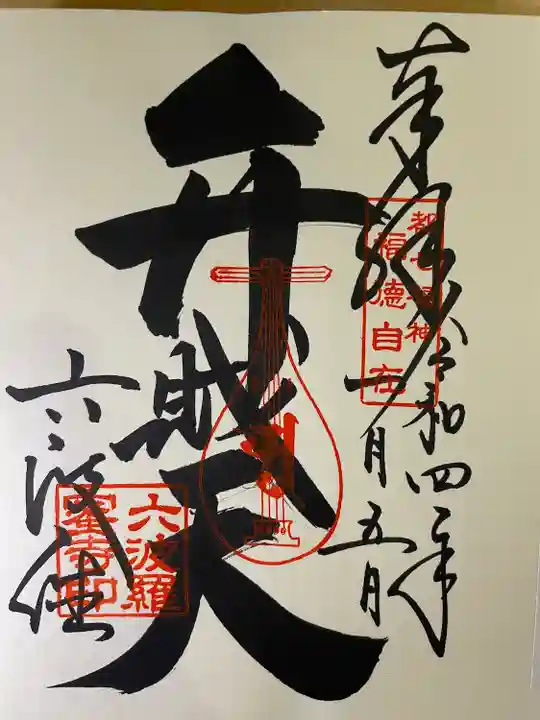 奉拝
令和四年
一月五日
都七福神
福徳自在
弁財天
六波羅
蜜寺印
六波